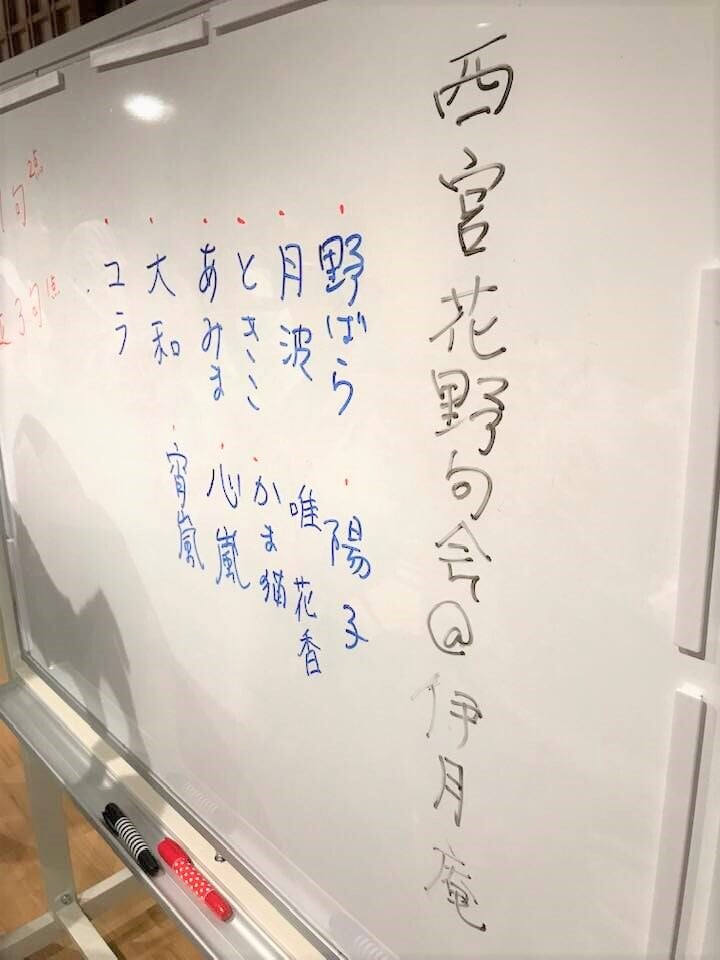 西宮花野句会@伊月庵
野ばら
月波
ときこ
あみま
大和
陽子
唯花香
かま猫
心嵐
宵嵐
句2点
3句1点